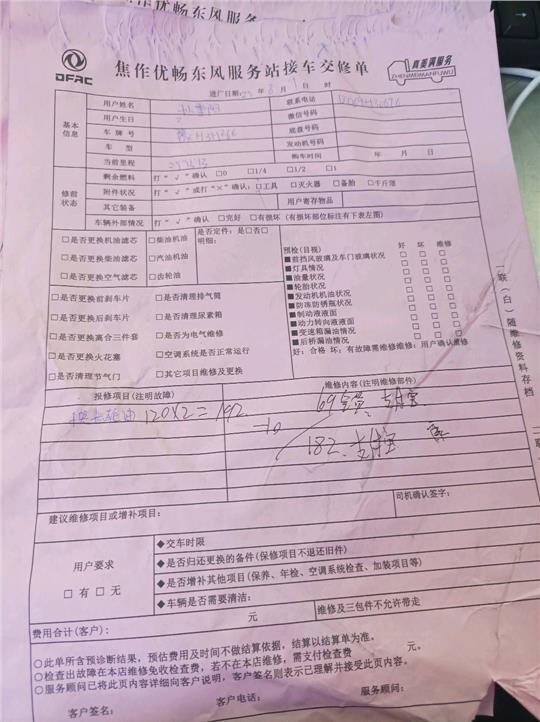 DFAC
焦作优畅东风服务站接车交修单
真要满服务
ZHENMEMANFUWU
进厂日期: 年 8 月 1 日 时
基本信息
用户姓名 联系电话
用户生日 微信号码
车牌号 底盘号码
车型 发动机号码
当前里程 购车时间 年 月 日
修前状态
剩余燃料 打“√”确认 □0 □1/4 □1/2 □1
附件状况 打“√”或打“×”确认:□工具 □灭火器 □备胎 □千斤顶
其它装备 用户寄存物品
车辆外部情况 打“√”确认 □完好 □有损坏 (有损坏部位标注有下表左图)
□是否更换机油滤芯 □柴油机油 是否定件: 是□否□
□是否更换柴油滤芯 □汽油机油 明细:
□是否更换空气滤芯 □齿轮油
□是否更换前刹车片 □是否清理排气筒
□是否更换后刹车片 □是否清理尿素箱
□是否更换离合三件套 □是否为电气维修
□是否更换火花塞 □空调系统是否正常运行
□是否清理节气门 □其它项目维修及更换
预检(目视) 好 坏 维修
■前挡风玻璃及车门玻璃状况 □ □ □
■灯具情况 □ □ □
■油量状况 □ □ □
■轮胎状况 □ □ □
■发动机机油状况 □ □ □
■防冻防锈瓶状况 □ □ □
■制动液液面 □ □ □
■动力转向液液面 □ □ □
■变速箱漏油情况 □ □ □
■后桥漏油情况 □ □ □
好: 合格 坏: 有故障需维修维修: 用户确认维修
一联(白)随维修资料存档
报修项目(注明故障) 维修内容(注明维修部件)
120×2=192
-10
182. 支付宝
建议维修项目或增补项目:
司机确认签字:
用户要求
□有 □无
◆交车时限
◆是否归还更换的备件(保修项目不退还旧件)
◆是否增补其他项目(保养、年检、空调系统检查、加装项目等)
◆车辆是否需要清洁:
费用合计(客户): 元
维修及三包件不允许带走
○此单所含预诊断结果,预估费用及时间不做结算依据,结算以结算单为准。
○检查出故障在本店维修免收检查费,若不在本店维修,需支付检查费 元。
○服务顾问已将此页内容详细向客户说明,客户签名则表示已理解并接受此页内容。
客户签名: 客户电话: 服务顾问: